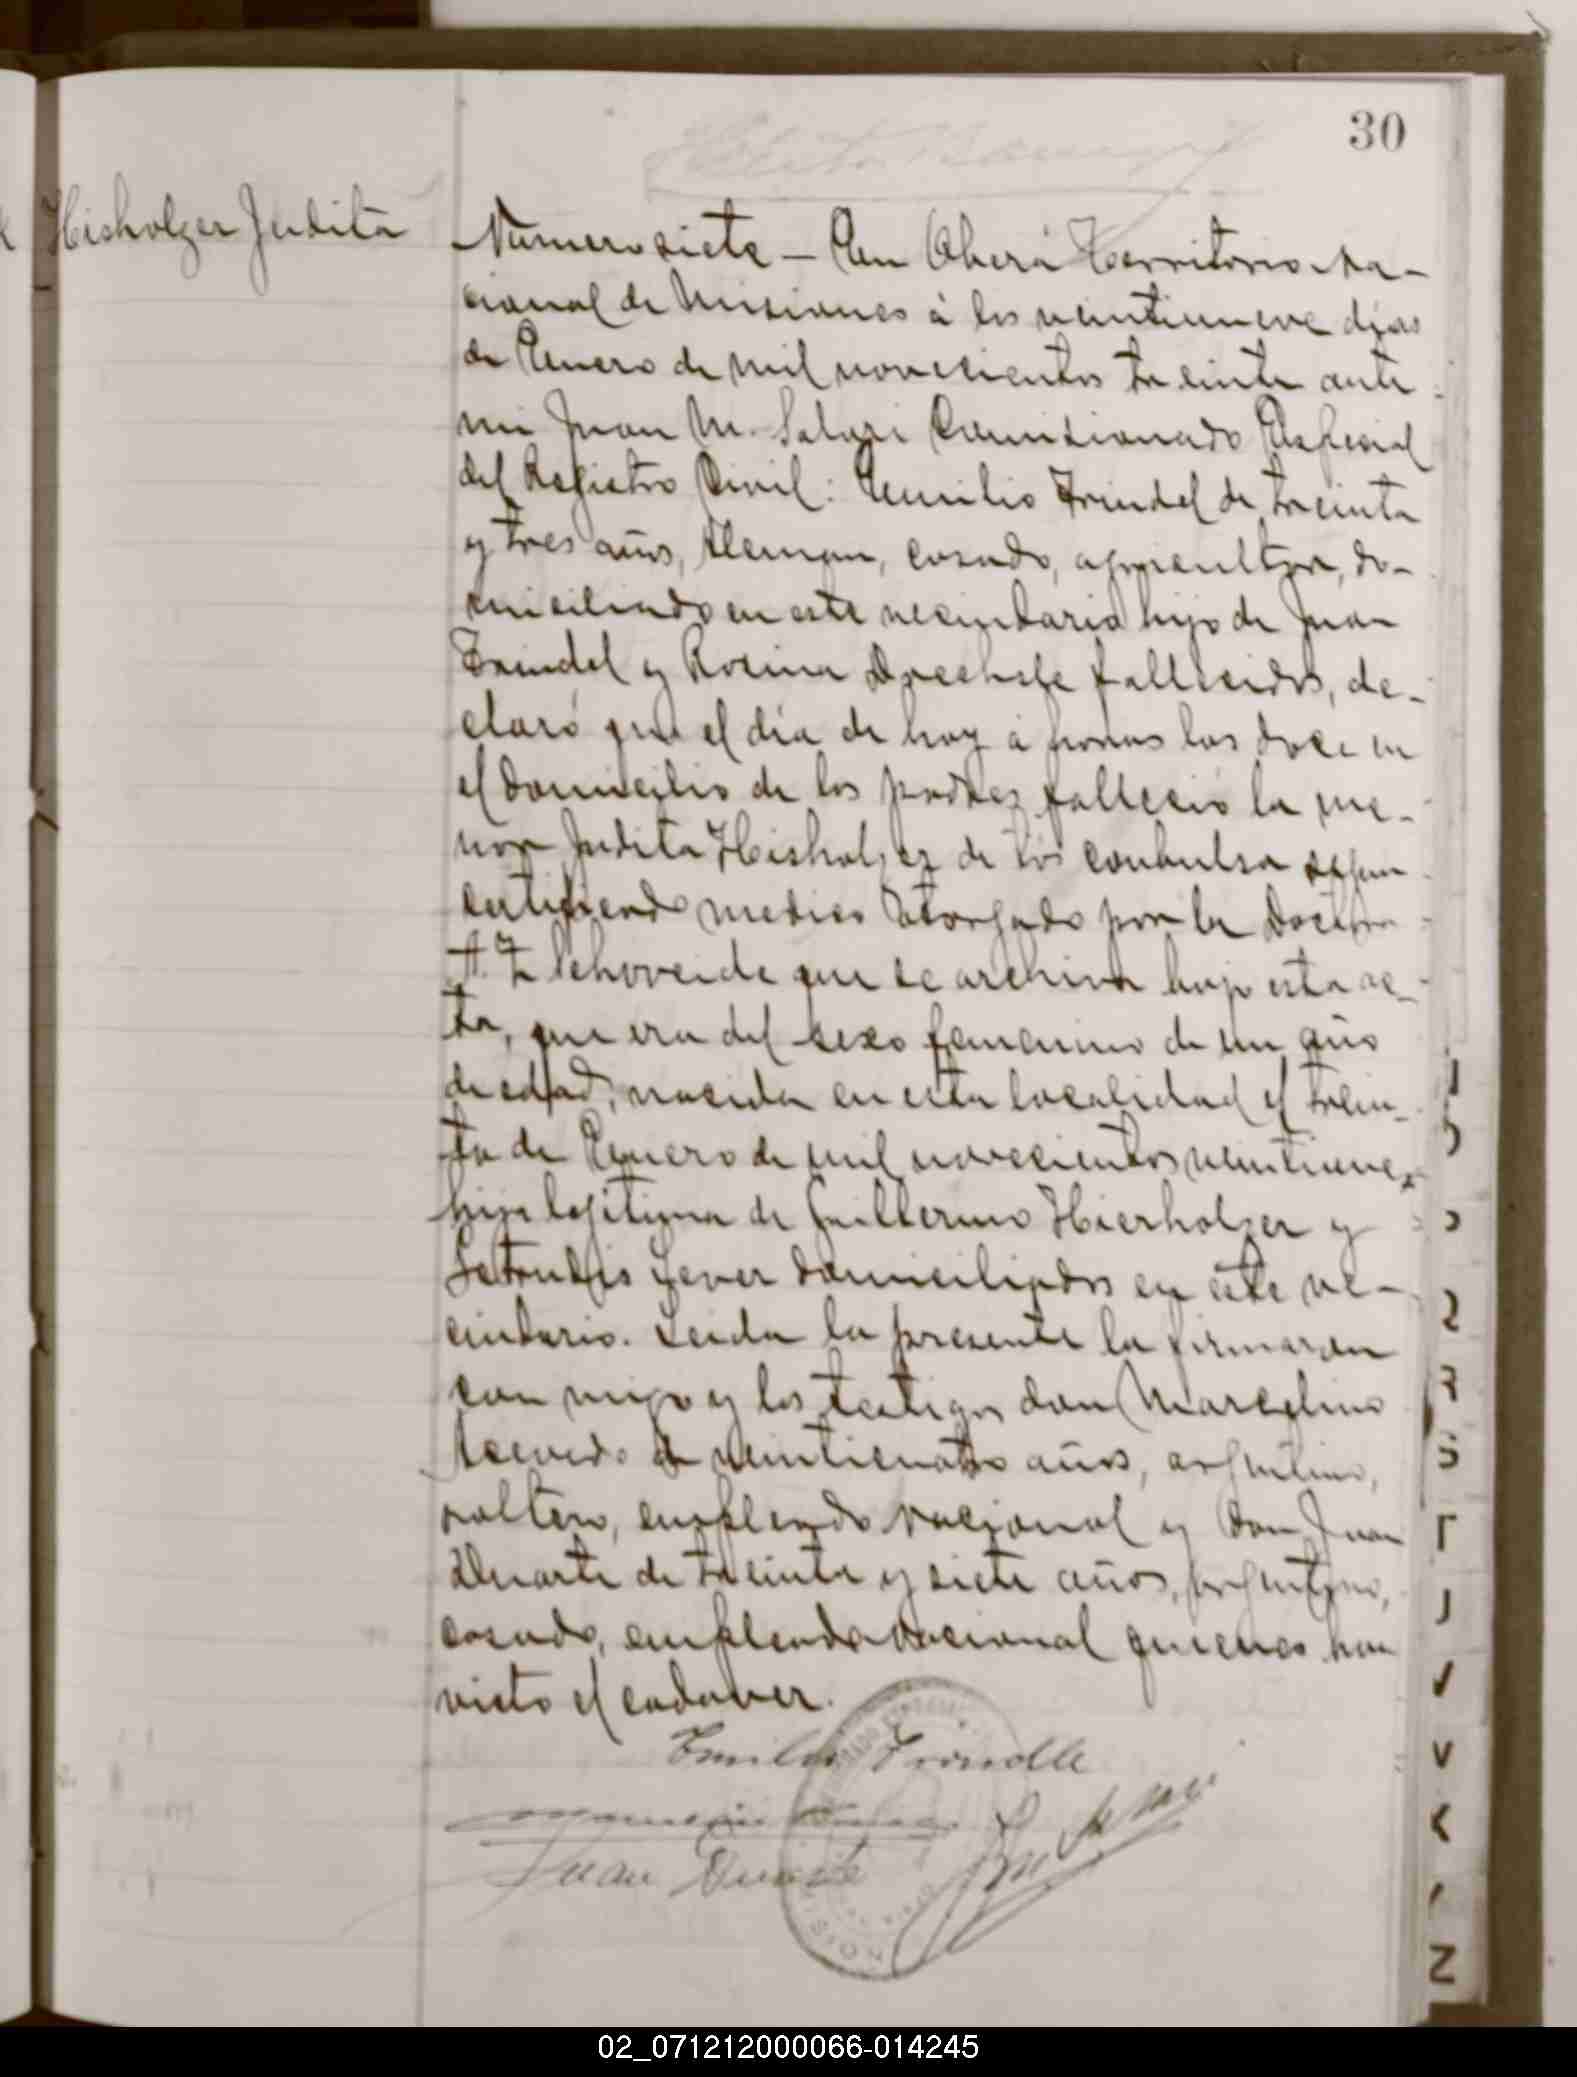 30
Hisholzer Judita
Número siete — En Oberá Territorio Na-
cional de Misiones á los veintinueve dias
de Enero de mil novecientos treinta ante
mi Juan M. Salari Comisionado Especial
del Registro Civil: Emilio Trindel de treinta
y tres años, Aleman, casado, agricultor, do-
miciliado en este vecindario hijo de Juan
Trindel y Rosina fallecidos, de-
claró que el día de hoy á horas las doce en
el domicilio de los padres falleció la me-
nor Judita Hisholzer de tos convulsa segun
certificado medico otorgado por la Doctora
A. Z que se archiva bajo esta ac-
ta, que era del sexo femenino de un año
de edad, nacida en esta localidad el trein-
ta de Enero de mil novecientos veintinueve
hija legitima de Guillermo Hierholzer y
domiciliados en este ve-
cindario. Leida la presente la firmaron
con migo y los testigos don Marcelino
Acevedo de veinticuatro años, argentino,
soltero, empleado nacional y don Juan
Duarte de treinta y siete años, argentino,
casado, empleado nacional quienes han
visto el cadaver.
Emilio Trindle
Juan Duarte
1
5
2
R
S
T
J
V
V
Z
02_071212000066-014245